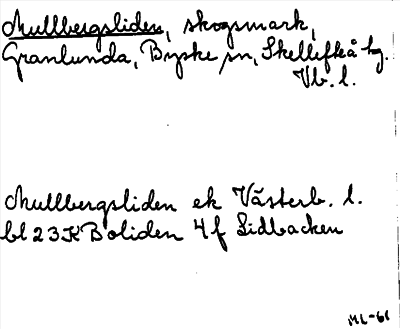 Mullbergsliden, skogsmark,
Granlunda, Byske sn, Skellefteå tg.
Vb. l.
Mullbergsliden ek Västerb. l.
bl 23K Boliden 4f Lidbacken
ML-61